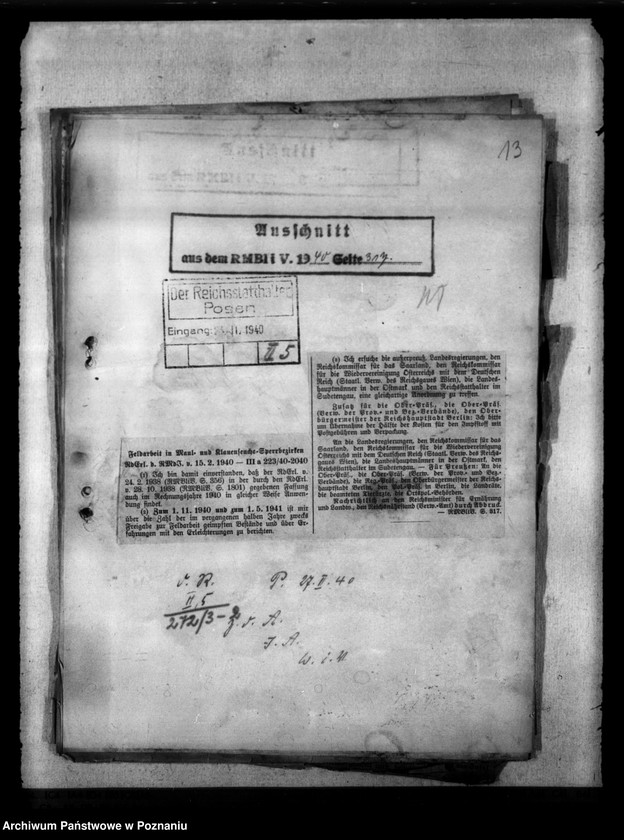 13
Ausschnitt
aus dem RMBliV. 1940 Seite 317.
Der Reichsstatthalter
Posen
Eingang: 1940
II 5
Feldarbeit in Maul- und Klauenseuche-Sperrbezirken
RdErl. d. RMdJ. v. 15. 2. 1940 — III a 223/40-2040
(1) Ich bin damit einverstanden, daß der RdErl. v.
24. 2. 1938 (RMBliV. S. 356) in der durch den RdErl.
v. 28. 10. 1938 (RMBliV. S. 1801) gegebenen Fassung
auch im Rechnungsjahre 1940 in gleicher Weise Anwen-
dung findet.
(2) Zum 1. 11. 1940 und zum 1. 5. 1941 ist mir
über die Zahl der im vergangenen halben Jahre zwecks
Freigabe zur Feldarbeit geimpften Bestände und über Er-
fahrungen mit den Erleichterungen zu berichten.
(3) Ich ersuche die außerpreuß. Landesregierungen, den
Reichskommissar für das Saarland, den Reichskommissar
für die Wiedervereinigung Österreichs mit dem Deutschen
Reich (Staatl. Verw. des Reichsgaus Wien), die Landes-
hauptmänner in der Ostmark und den Reichsstatthalter im
Sudetengau, eine gleichartige Anordnung zu treffen.
Zusatz für die Ober-Präs., die Ober-Präs.
(Verw. der Prov.- und Bez.-Verbände), den Ober-
bürgermeister der Reichshauptstadt Berlin: Ich bitte
um Übernahme der Hälfte der Kosten für den Impfstoff mit
Postgebühren und Verpackung.
An die Landesregierungen, den Reichskommissar für das
Saarland, den Reichskommissar für die Wiedervereinigung
Österreichs mit dem Deutschen Reich (Staatl. Verw. des Reichs-
gaus Wien), die Landeshauptmänner in der Ostmark, den
Reichsstatthalter im Sudetengau. — Für Preußen: An die
Ober-Präs., die Ober-Präs. (Verw. der Prov.- und Bez.-
Verbände), die Reg.-Präs., den Oberbürgermeister der Reichs-
hauptstadt Berlin, den Pol.-Präs. in Berlin, die Landräte,
die beamteten Tierärzte, die Ortspol.-Behörden.
Nachrichtlich an den Reichsminister für Ernährung
und Landw., den Reichsnährstand (Verw.-Amt) durch Abdruck.
— RMBliV. S. 317.
v. R. P. 27.II.40
II 5
272/3-2
z. d. A.
J. A.
Archiwum Państwowe w Poznaniu